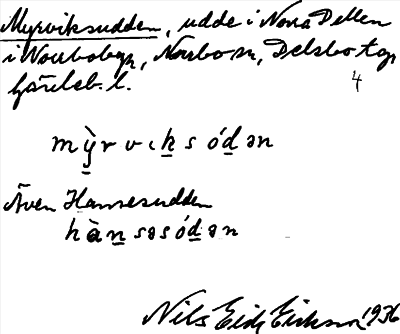 Myrviksudden, udde i Norra Dellen
i Norrbobyn, Norrbo sn, Delsbo tg
Gävleb. l.
4
m ỳ̱ r v ı ḵ s ó ḏ ə n
Även Hannesudden
h à ṉ s ə s ó ḏ ə n
Nils Erik Erikson 1936